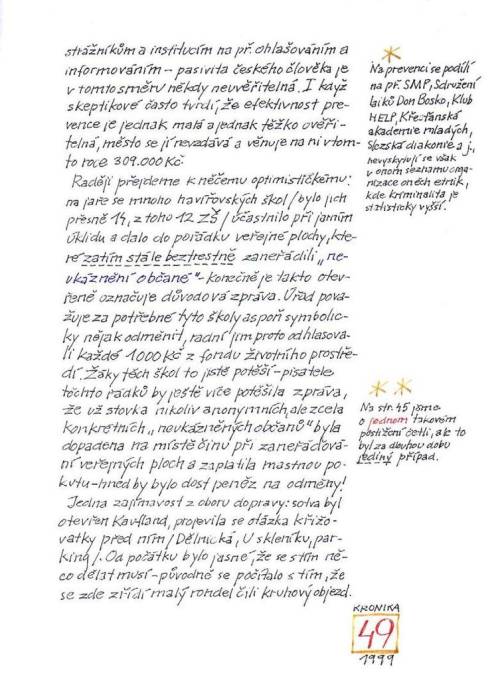 strážníkům a institucím na př. ohlašováním a
informováním – pasivita českého člověka je
v tomto směru někdy neuvěřitelná. I když
skeptikové často tvrdí, že efektivnost pre-
vence je jednak malá a jednak těžko ověři-
telná, město se jí nevzdává a věnuje na ni v tom-
to roce 309.000 Kč.
Raději přejdeme k něčemu optimističkému:
na jaře se mnoho havířovských škol / bylo jich
přesně 14, z toho 12 ZŠ / účastnilo při jarním
úklidu a dalo do pořádku veřejné plochy, kte-
ré zatím stále beztrestně zaneřádili „ne-
ukáznění občané" – konečně je takto otev-
řeně označuje důvodová zpráva. Úřad pova-
žuje za potřebné tyto školy aspoň symbolic-
ky nějak odměnit, radní jim proto odhlasova-
li každé 1000 Kč z fondu životního prostře-
dí. Žáky těch škol to jistě potěší – pisatele
těchto řádků by ještě více potěšila zpráva,
že už stovka nikoliv anonymních, ale zcela
konkretních „neukázněných občanů" byla
dopadena na místě činu při zaneřáďová-
ní veřejných ploch a zaplatila mastnou po-
kutu – hned by bylo dost peněz na odměny!
Jedna zajímavost z oboru dopravy: sotva byl
otevřen Kaufland, projevila se otázka křižo-
vatky před ním / Dělnická, U skleníku, par-
king /. Od počátku bylo jasné, že se s tím ně-
co dělat musí – původně se počítalo s tím, že
se zde zřídí malý rondel čili kruhový objezd.
Na prevenci se podílí
na př. SMP, Sdružení
laiků Don Bosko, Klub
HELP, Křesťanská
akademie mladých,
Slezská diakonie a j.,
nevyskytují se však
v onom seznamu orga-
nizace oněch etnik,
kde kriminalita je
statisticky vyšší.
Na str. 45 jsme
o jednom takovém
postižení četli, ale to
byl za dlouhou dobu
jediný případ.
KRONIKA
49
1999